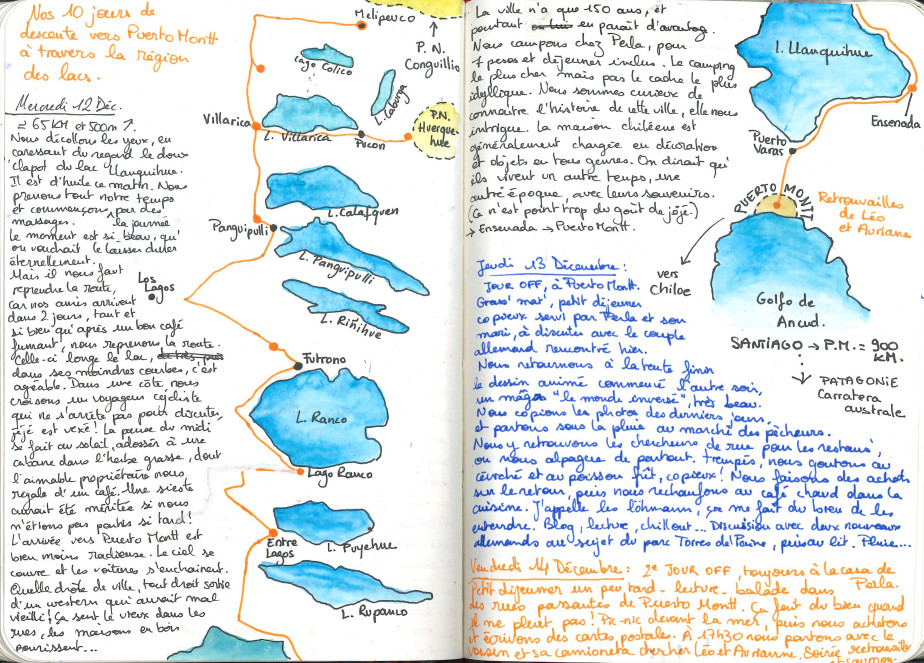 Nos 10 jours de
descente vers Puerto Montt
à travers la région
des lacs.
Mercredi 12 Déc.
≃ 65 KM et 500m ↗.
Nous décollons les yeux, en
caressant du regard le doux
clapot du lac Llanquihue.
Il est d'huile ce matin. Nous
prenons tout notre temps
et commençons par des
massages. la journée
le moment est si beau, qu'
on voudrait le laisser durer
éternellement.
Mais il nous faut
reprendre la route,
car nos amis arrivent
dans 2 jours, tant et
si bien qu'après un bon café
fumant, nous reprenons la route.
Celle-ci longe le lac,
dans ses moindres courbes, c'est
agéable. Dans une côte nous
croisons un voyageur cycliste
qui ne s'arrête pas pour discuter,
jéjé est vexé! La pause du midi
se fait au soleil, adossés à une
cabane dans l'herbe grasse, dont
l'aimable propriétaire nous
régale d'un café. Une sieste
aurait été méritée si nous
n'étions pas partis si tard!
L'arrivée vers Puerto Montt est
bien moins radieuse. Le ciel se
couvre et les voitures s'enchainent.
Quelle drôle de ville, tout droit sortie
d'un western qui aurait mal
vieilli! Ça sent le vieux dans les
rues, les maisons en bois
pourrissent...
Melipeuco
P. N.
Conguillio
Lago Colico
L. Caburga
Villarica
L. Villarica
Pucon
P.N.
Huerque-
hule
L. Calafquen
Panguipulli
L. Panguipulli
Los
Lagos
L. Riñihue
Futrono
L. Ranco
Lago Ranco
Entre
Lagos
L. Puyehue
L. Rupanco
La ville n'a que 150 ans, et
pourtant en parait d'avantag.
Nous campons chez Perla, pour
7 pesos et déjeuner inclus. Le camping
le plus cher mais pas le cadre le plus
idyllique. Nous sommes curieux de
connaitre l'histoire de cette ville, elle nous
intrigue. La maison chiléene est
généralement chargée en décoration
et objets en tous genres. On dirait qu'
ils vivent un autre temps, une
autre époque, avec leurs souvenirs.
(Ça n'est point trop du goût de jéjé.)
→ Ensenada → Puerto Montt.
l. Llanquihue
Ensenada
Puerto
Varas
PUERTO MONTT
Retrouvailles
de Léo
et Auriane
vers
Chiloe
Golfo de
Ancud.
SANTIAGO → P.M. = 900
KM.
PATAGONIE
Carratera
australe
Jeudi 13 Décembre :
JOUR OFF, à Puerto Montt.
Grass' mat', petit déjeuner
copieux servi par Perla et son
mari, à discuter avec le couple
allemand rencontré hier.
Nous retournons à la tente finir
le dessin animé commencé l'autre soir,
un mágas "le monde inversé", très beau.
Nous copions les photos des derniers jours,
et partons sous la pluie au marché des pêcheurs.
Nous y retrouvons les chercheurs de rue pour les restaus,
on nous alpague de partout. Trempés, nous goutons au
céviché et au poisson frit, copieux! Nous faisons des achats
sur le retour, puis nous rechauffons au café chaud dans la
cuisine. J'appelle les löhmann, ça me fait du bien de les
entendre. Blog, lecture, chillout... Discussion avec deux nouveaux
allemands au sujet du parc Torres del Paine, puis au lit. Pluie...
Vendredi 14 Décembre : 2e JOUR OFF, toujours à la casa de
Perla.
Petit déjeuner un peu tard - lecture - balade dans
des rues passantes de Puerto Montt. Ça fait du bien quand
il ne pleut pas! Pic-nic devant la mer, puis nous achetons
et écrivons des cartes postales. A 17H30 nous partons avec le
voisin et sa camioneta chercher Léo et Aurianne. Soirée retrouvailles